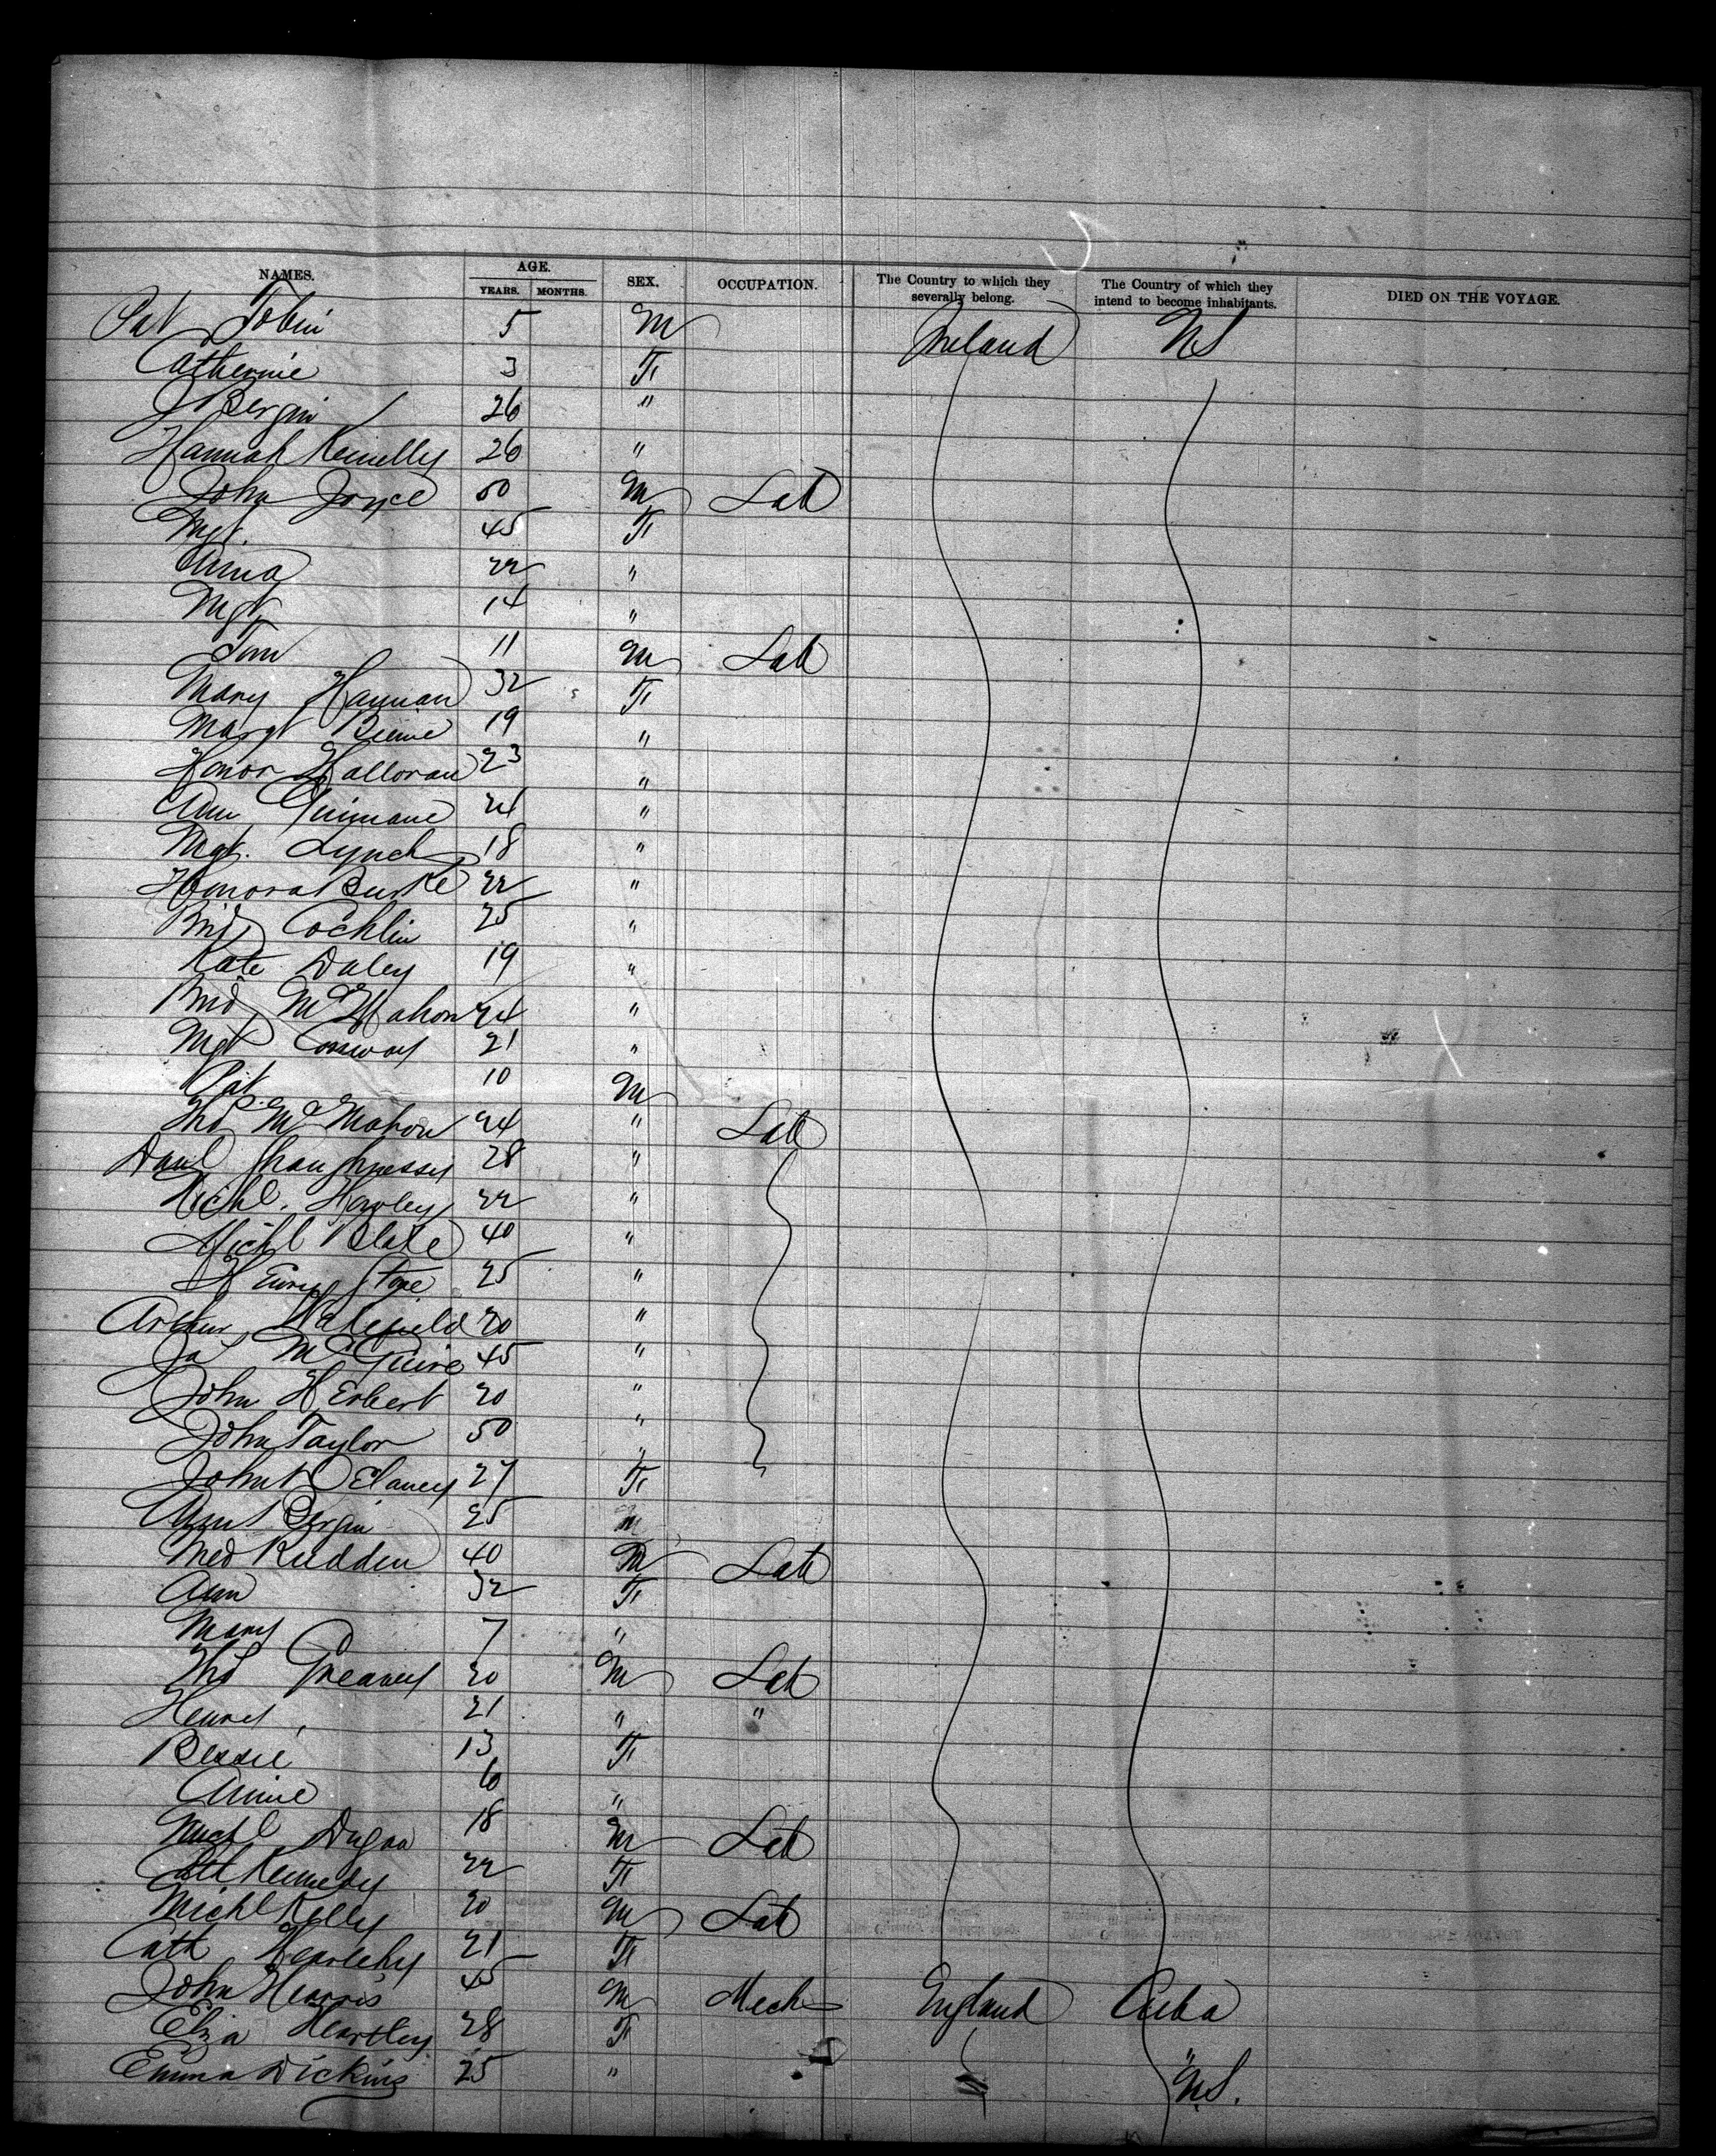 NAMES. AGE. YEARS. MONTHS. SEX. OCCUPATION. The Country to which they severally belong. The Country of which they intend to become inhabitants. DIED ON THE VOYAGE.
Pat Tobin 5 M Ireland US
Catherine 3 F
J Bergin 26 "
Hannah Kennelly 26 "
John Joyce 50 M Lab
Mgt. 45 F
Anna 22 "
Mgt 14 "
Tom 11 M Lab
Mary Hannan 32 F
Margt Beirne 19 "
Honor Halloran 23 "
Ann Guinnane 24 "
Mgt. Lynch 18 "
Honora Burke 22 "
Brid Cochlin 25 "
Kate Daley 19 "
Brid McMahon 24 "
Mgt Conway 21 "
Pat 10 M
Thos McMahon 24 " Lab
Danl Shaughnessy 28 "
Michl. Hawley 22 "
Michl Blake 40 "
Henry Stone 25 "
Arthur Wakefield 20 "
Jas McGuire 45 "
John Herbert 20 "
John Taylor 50 "
John Delaney 27 F
Ann Bergin 25
Med Rudden 40 M Lab
Ann 32 F
Mary 7 "
Thos Greaney 20 M Lab
Henry 21 " "
Bessie 13 F
Annie 6 "
Michl Dugan 18 M Lab
Cath Kennedy 22 F
Michl Kelly 20 M Lab
Cath 21 F
John Harris 45 M Mech England Cuba
Eliza Heartley 28 F "
Emma Dickins 25 " U.S.